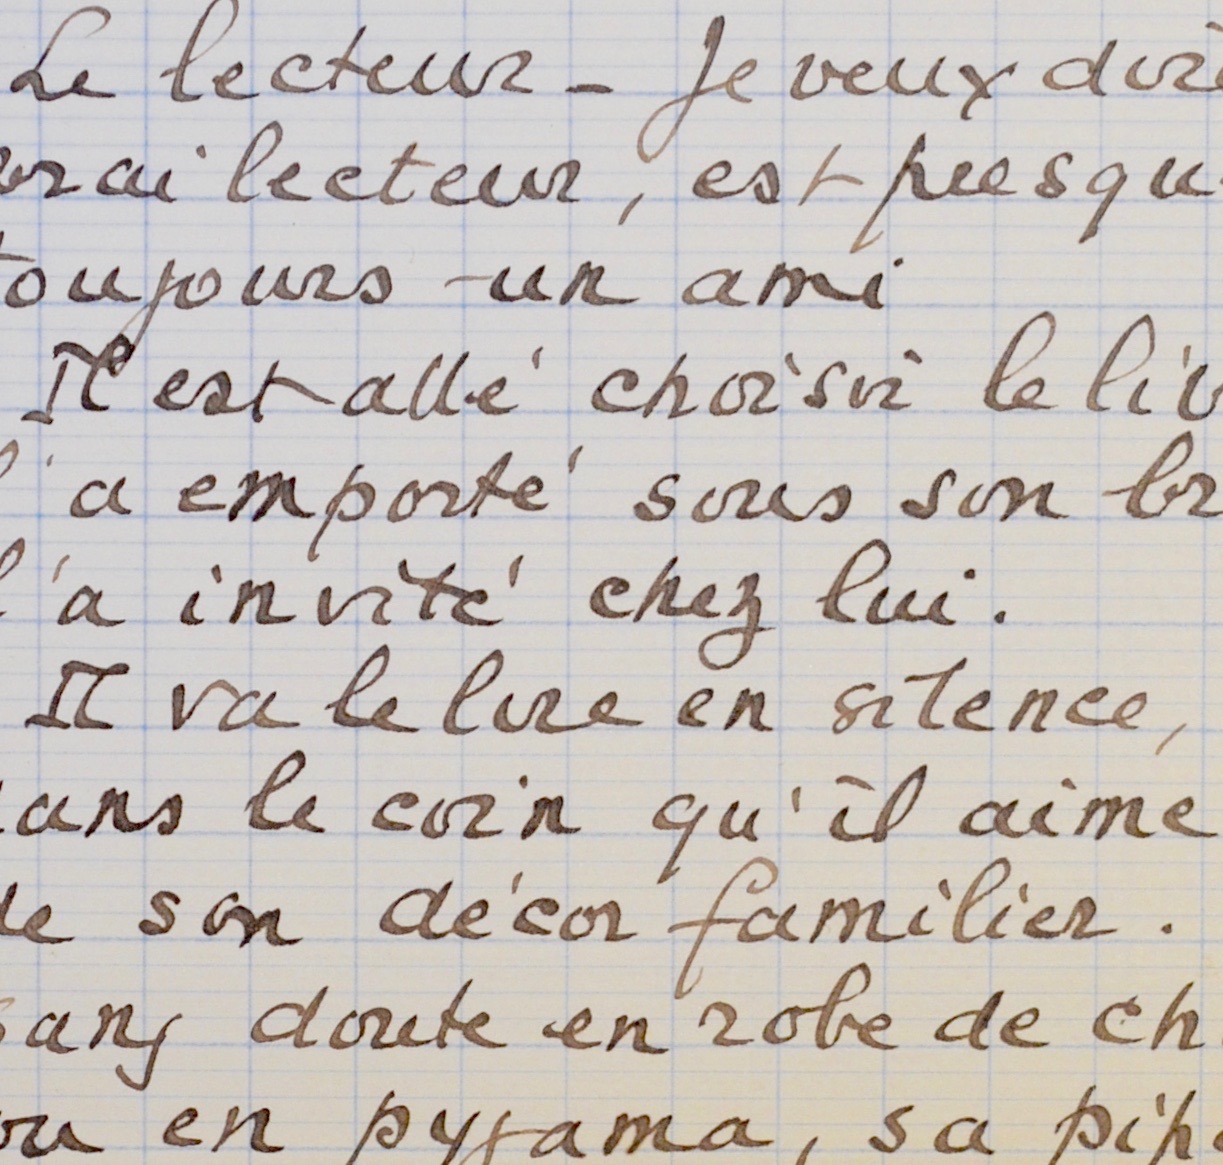 Le lecteur - Je veux dire
vrai lecteur, est presqu
toujours un ami
Il est allé choisir le liv
l'a emporté sous son br
l'a invité chez lui.
Il va le lire en silence,
dans le coin qu'il aime
de son décor familier.
sans doute en robe de ch
ou en pyjama, sa pipe